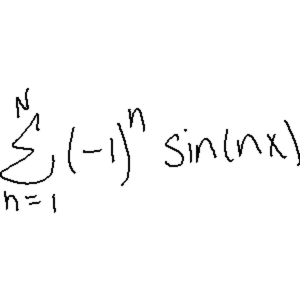 \sum_{n=1}^{N} (-1)^n sin(nx)